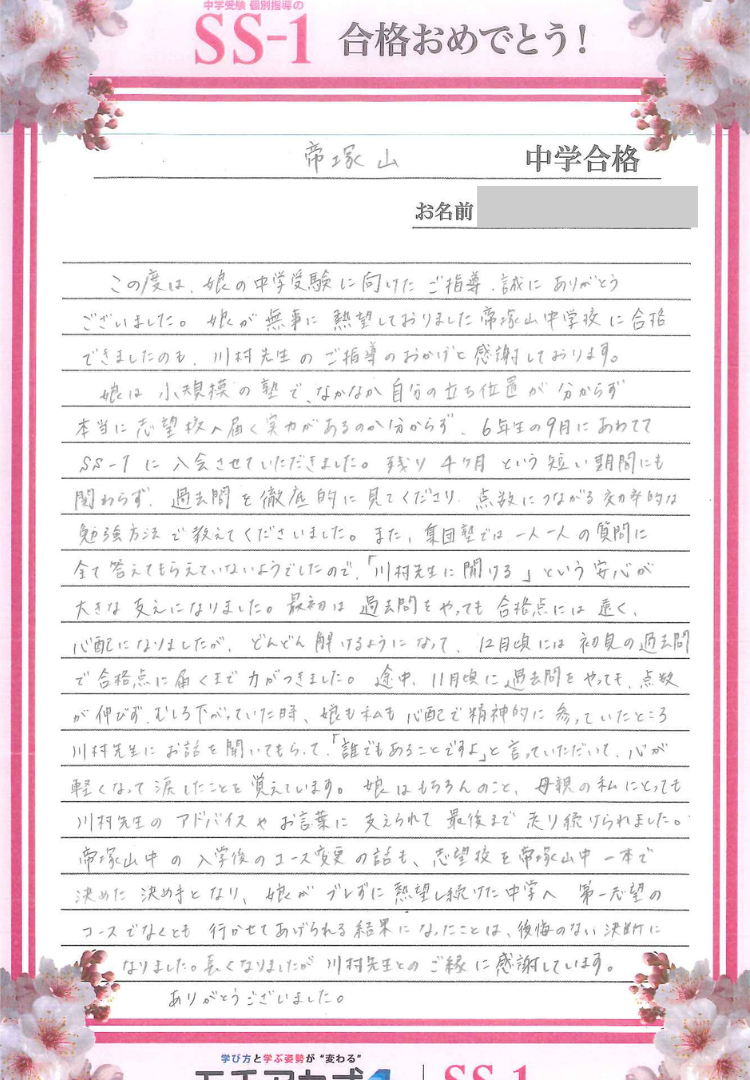 中学受験 個別指導の
SS-1 合格おめでとう！
帝塚山 中学合格
お名前
この度は、娘の中学受験に向けたご指導、誠にありがとう
ございました。娘が無事に熱望しておりました帝塚山中学校に合格
できましたのも、川村先生のご指導のおかげと感謝しております。
娘は小規模の塾で、なかなか自分の立ち位置が分からず
本当に志望校へ届く実力があるのか分からず、6年生の9月にあわてて
SS-1に入会させていただきました。残り4ヶ月という短い期間にも
関わらず、過去問を徹底的に見てくださり、点数につながる効率的な
勉強方法で教えてくださいました。また、集団塾では一人一人の質問に
全て答えてもらえていないようでしたので、「川村先生に聞ける」という安心が
大きな支えになりました。最初は過去問をやっても合格点には遠く、
心配になりましたが、どんどん解けるようになって、12月頃には初見の過去問
で合格点に届くまで力がつきました。途中、11月頃に過去問をやっても、点数
が伸びず、むしろ下がっていた時、娘も私も心配で精神的に参っていたところ
川村先生にお話を聞いてもらって、「誰でもあることですよ」と言っていただいて、心が
軽くなって涙したことを覚えています。娘はもちろんのこと、母親の私にとっても
川村先生のアドバイスやお言葉に支えられて最後まで走り続けられました。
帝塚山中の入学後のコース変更の話も、志望校を帝塚山中一本で
決めた決め手となり、娘がブレずに熱望し続けた中学へ第一志望の
コースでなくとも行かせてあげられる結果になったことは、後悔のない決断に
なりました。長くなりましたが川村先生とのご縁に感謝しています。
ありがとうございました。
学び方と学ぶ姿勢が"変わる"
SS-1